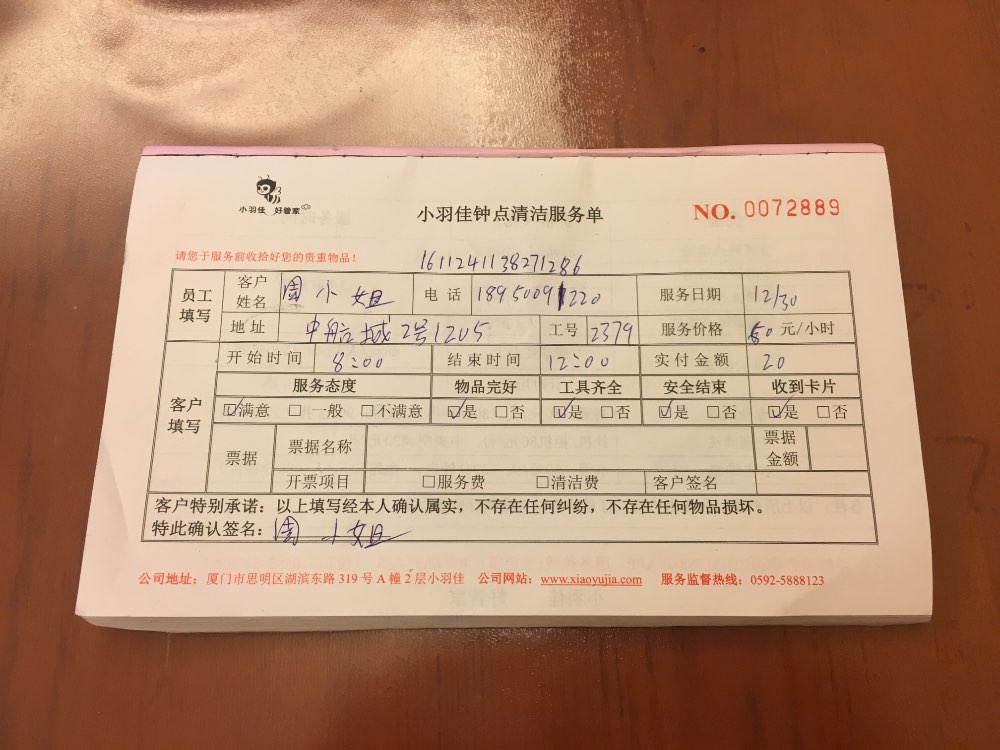 小羽佳 好管家
小羽佳钟点清洁服务单
NO. 0072889
请您于服务前收拾好您的贵重物品！
1611241138271286
员工填写 客户姓名 周小姐 电话 18950091220 服务日期 12/30
地址 中航城2号1205 工号 2379 服务价格 50 元/小时
客户填写 开始时间 8:00 结束时间 12:00 实付金额 20
服务态度 物品完好 工具齐全 安全结束 收到卡片
☑满意 □一般 □不满意 ☑是 □否 ☑是 □否 ☑是 □否 ☑是 □否
票据 票据名称 票据金额
开票项目 □服务费 □清洁费 客户签名
客户特别承诺：以上填写经本人确认属实，不存在任何纠纷，不存在任何物品损坏。
特此确认签名：周小姐
公司地址：厦门市思明区湖滨东路 319 号 A 幢 2 层小羽佳 公司网站：www.xiaoyujia.com 服务监督热线：0592-5888123